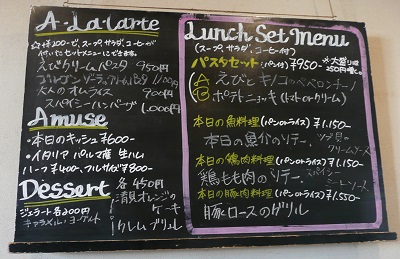 A・La Carte
スープ、サラダ、コーヒーが
付いたセットメニューにできます。
えびクリームパスタ 950円
1100円
大人のオムライス 900円
スパイシーハンバーグ 1,000円
Amuse
・本日のキッシュ ¥600-
・イタリア パルマ産 生ハム
ハーフ ¥400、フルサイズ ¥800-
Dessert
各450円
ジェラート 各200円
キャラメル・ヨーグルト
清見オレンジの
ケーキ
クレムブリュレ
Lunch Set Menu
(スープ、サラダ、コーヒー付)
パスタセット (パン付) ¥950-
大盛りは
250円増し
Ⓐ えびとキノコのペペロンチーノ
Ⓑ ポテトニョッキ (トマト or クリーム)
本日の魚料理 (パン or ライス) ¥1,150-
本日の魚介のソテー、
クリームソース
本日の鶏肉料理 (パン or ライス) ¥1,150-
鶏もも肉のソテー、スパイシー
本日の豚肉料理 (パン or ライス) ¥1,550-
豚ロースのグリル